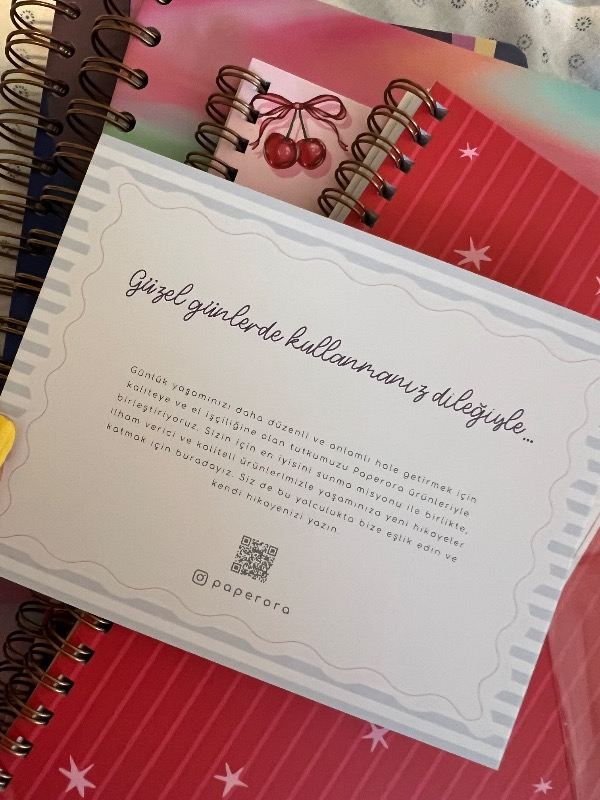 Güzel günlerde kullanmanız dileğiyle...
Günlük yaşamınızı daha düzenli ve anlamlı hale getirmek için
kaliteye ve el işçiliğine olan tutkumuzu Paperora ürünleriyle
birleştiriyoruz. Sizin için en iyisini sunma misyonu ile birlikte,
ilham verici ve kaliteli ürünlerimizle yaşamınıza yeni hikayeler
katmak için buradayız. Siz de bu yolculukta bize eşlik edin ve
kendi hikayenizi yazın.
paperora